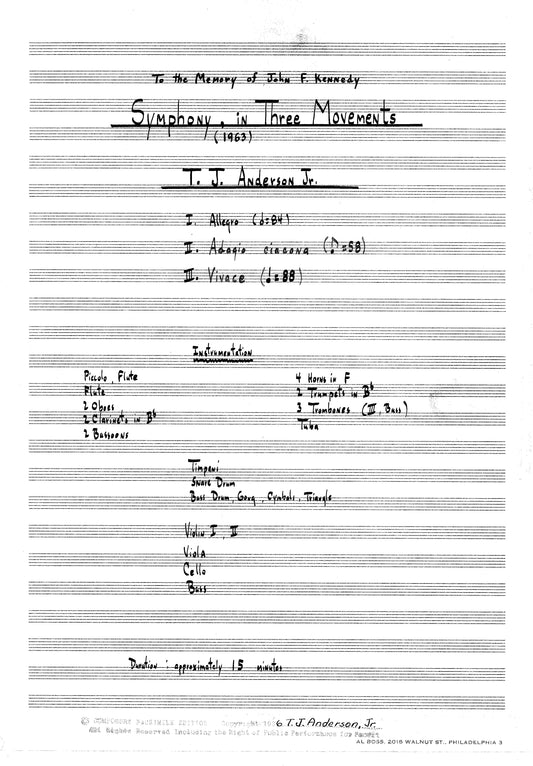 To the Memory of John F. Kennedy
Symphony in Three Movements
(1963)
T. J. Anderson Jr.
I. Allegro (𝅗𝅥=84)
II. Adagio ciacona (♪=58)
III. Vivace (♩=88)
Instrumentation
Piccolo, Flute
Flute
2 Oboes
2 Clarinets in B♭
2 Bassoons
4 Horns in F
2 Trumpets in B♭
3 Trombones (III, Bass)
Tuba
Timpani
Snare Drum
Bass Drum, Gong, Cymbals, Triangle
Violin I II
Viola
Cello
Bass
Duration: approximately 15 minutes
© COMPOSERS FACSIMILE EDITION Copyright 6 T.J. Anderson, Jr.
All Rights Reserved Including the Right of Public Performance for Profit
AL BOSS, 2016 WALNUT ST., PHILADELPHIA 3